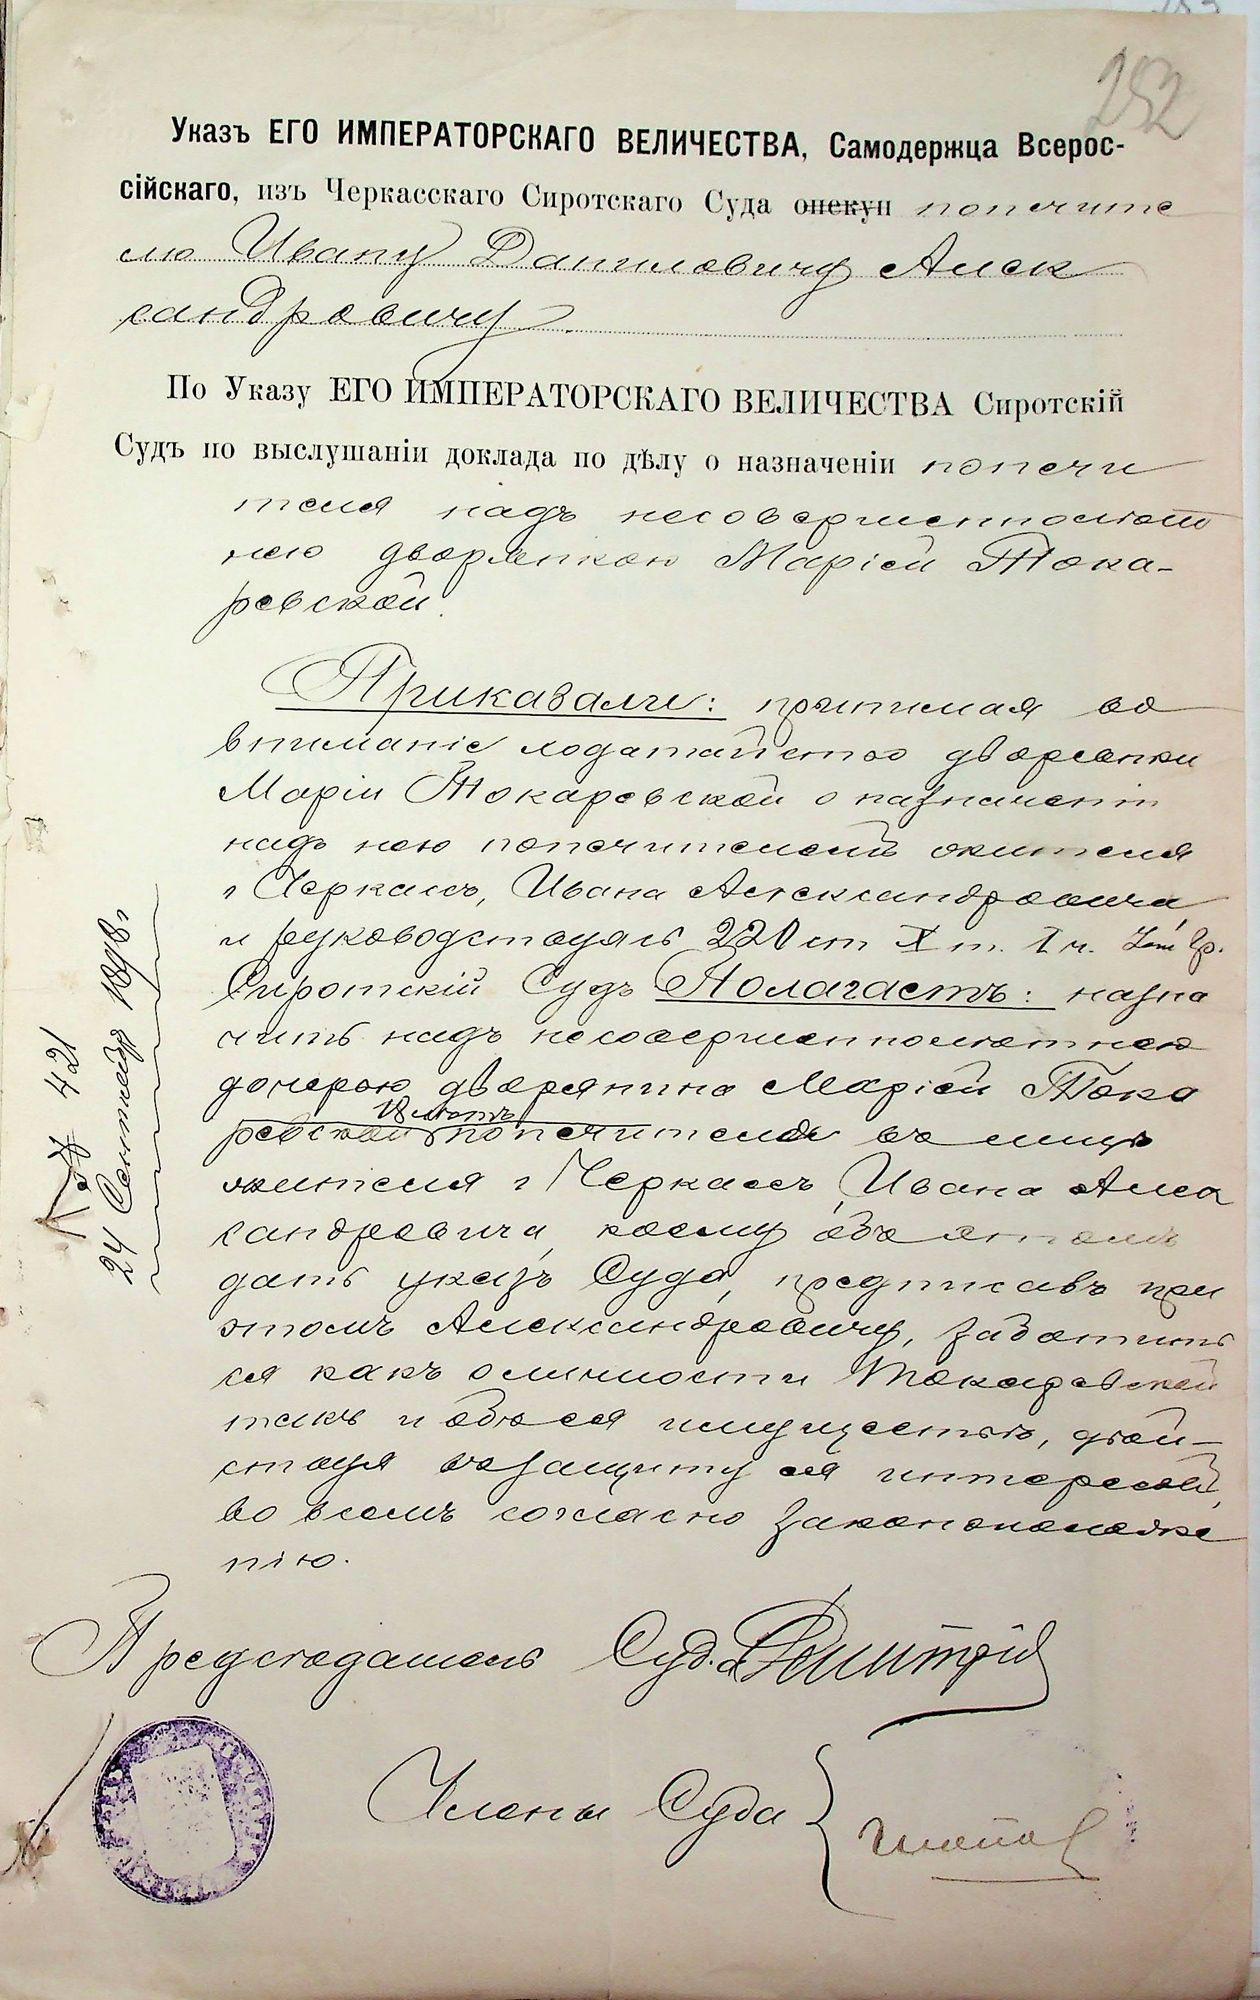 252
Указъ ЕГО ИМПЕРАТОРСКАГО ВЕЛИЧЕСТВА, Самодержца Всерос-
сійскаго, изъ Черкасскаго Сиротскаго Суда опекун попечите
лю Ивану Даниловичу Алек
сандровичу.
По Указу ЕГО ИМПЕРАТОРСКАГО ВЕЛИЧЕСТВА Сиротскій
Судъ по выслушаніи доклада по дѣлу о назначеніи попечи
теля надъ несовершеннолѣт
нею дворянкою Маріей Тока-
ревской.
Приказали: принимая во
вниманіе ходатайство дворянки
Маріи Токаревской о назначеніи
надъ нею попечителемъ жителя
г Черкассъ, Ивана Александровича,
и руководствуясь 220 ст X т. I ч. Зак Гр.
Сиротскій Судъ Полагаетъ: назна
чить надъ несовершеннолѣтнею
дочерью дворянина Маріей Тока
ревской 18 лѣтъ попечителя въ лицѣ
жителя г Черкассъ, Ивана Алек
сандровича, коему объ этомъ
дать указъ Суда, предписавъ при
этомъ Александровичу, заботить
ся какъ о личности Токаревской
такъ и объ ея имуществѣ, дѣй-
ствуя въ защиту ея интересовъ,
во всемъ согласно законоположе
нію.
Предсѣдатель Суда
Члены Суда
№ 421
24 Сентября 1898 г